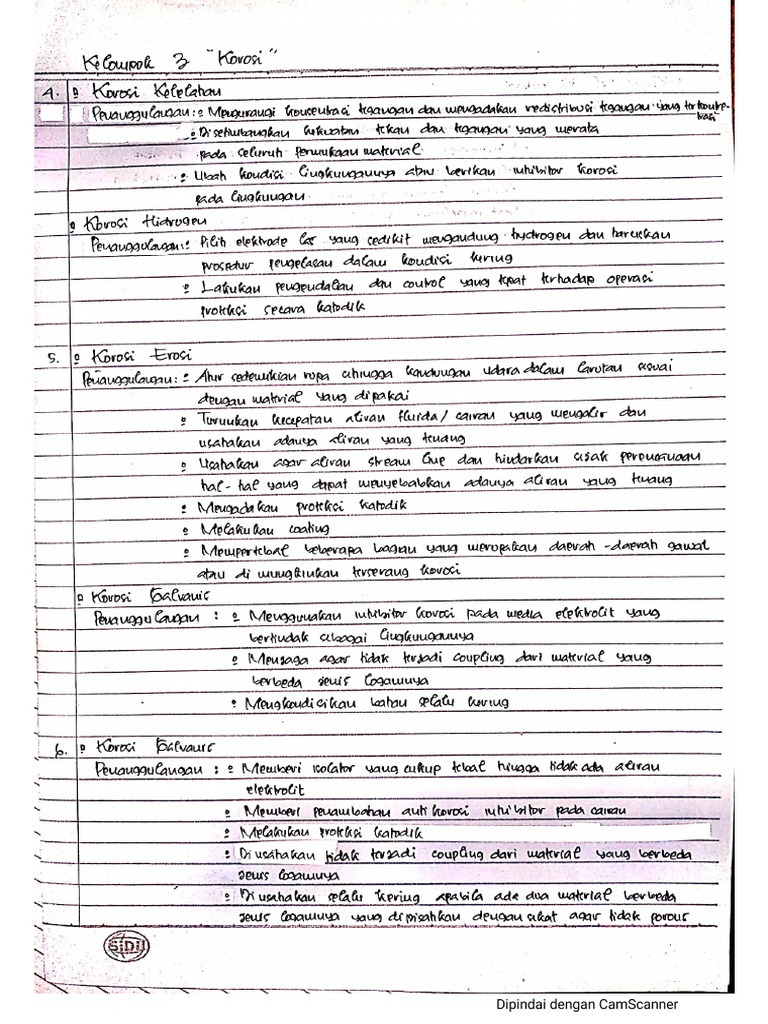 Kelompok 3 "Korosi"
4. Korosi Kelelahan
Penanggulangan : Mengurangi konsentrasi tegangan dan mengadakan redistribusi tegangan yang terkonsentrasi
Diseimbangkan kekuatan tekan dan tegangan yang merata
pada seluruh permukaan material
Ubah kondisi lingkungannya atau berikan inhibitor korosi
pada lingkungan
Korosi Hidrogen
Penanggulangan : Pilih elektrode las yang sedikit mengandung hydrogen dan teruskan
prosedur pengelasan dalam kondisi kering
Lakukan pengendalian dan control yang tepat terhadap operasi
proteksi secara katodik
5. Korosi Erosi
Penanggulangan : Atur sedemikian rupa sehingga kandungan udara dalam larutan sesuai
dengan material yang dipakai
Turunkan kecepatan aliran fluida / cairan yang mengalir dan
usahakan adanya aliran yang tenang
Usahakan agar aliran stream line dan hindarkan sejak perencanaan
hal-hal yang dapat menyebabkan adanya aliran yang tenang
Mengadakan proteksi katodik
Melakukan coating
Mempertebal beberapa bagian yang merupakan daerah-daerah gawat
atau di mungkinkan terserang korosi
Korosi Galvanis
Penanggulangan : Menggunakan inhibitor korosi pada media elektrolit yang
bertindak sebagai lingkungannya
Menjaga agar tidak terjadi coupling dari material yang
berbeda jenis logamnya
Mengkondisikan bahan selalu kering
6. Korosi Galvanis
Penanggulangan : Memberi isolator yang cukup tebal hingga tidak ada aliran
elektrolit
Memberi penambahan anti korosi inhibitor pada cairan
Melakukan proteksi katodik
Di usahakan tidak terjadi coupling dari material yang berbeda
jenis logamnya
Di usahakan selalu kering apabila ada dua material berbeda
jenis logamnya yang dipisahkan dengan sekat agar tidak porous
SiDU
Dipindai dengan CamScanner